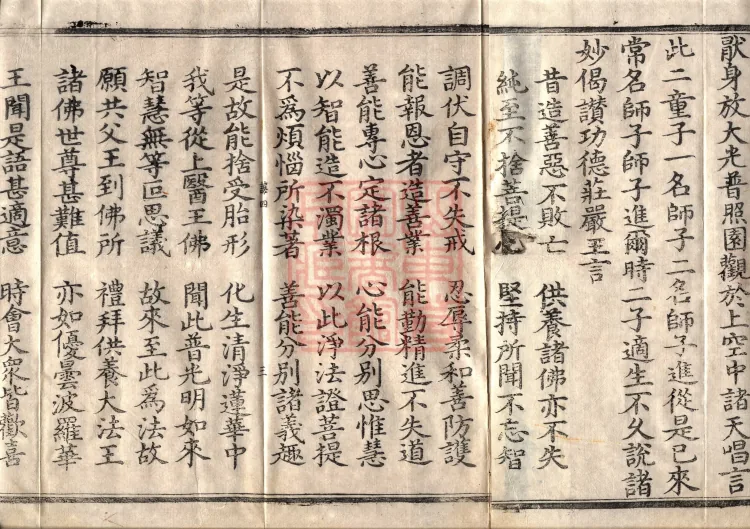 猒身放大光普照園觀於上空中諸天唱言
此二童子一名師子二名師子進從是已來
常名師子師子進爾時二子適生不久說諸
妙偈讚功德莊嚴王言
昔造善惡不敗亡　供養諸佛亦不失
純至不捨菩提　堅持所聞不忘智
調伏自守不失戒　忍辱柔和善防護
能報恩者造善業　能勤精進不失道
善能專心定諸根　心能分別思惟慧
以智能造不濁業　以此淨法證菩提
不為煩惱所染著　善能分別諸義趣
第四　三
是故能捨受胎形　化生清淨蓮華中
我等從上醫王佛　聞此普光明如來
智慧無等叵思議　故來至此為法故
願共父王到佛所　禮拜供養大法王
諸佛世尊甚難值　亦如優曇波羅華
王聞是語甚適意　時會大衆皆歡喜